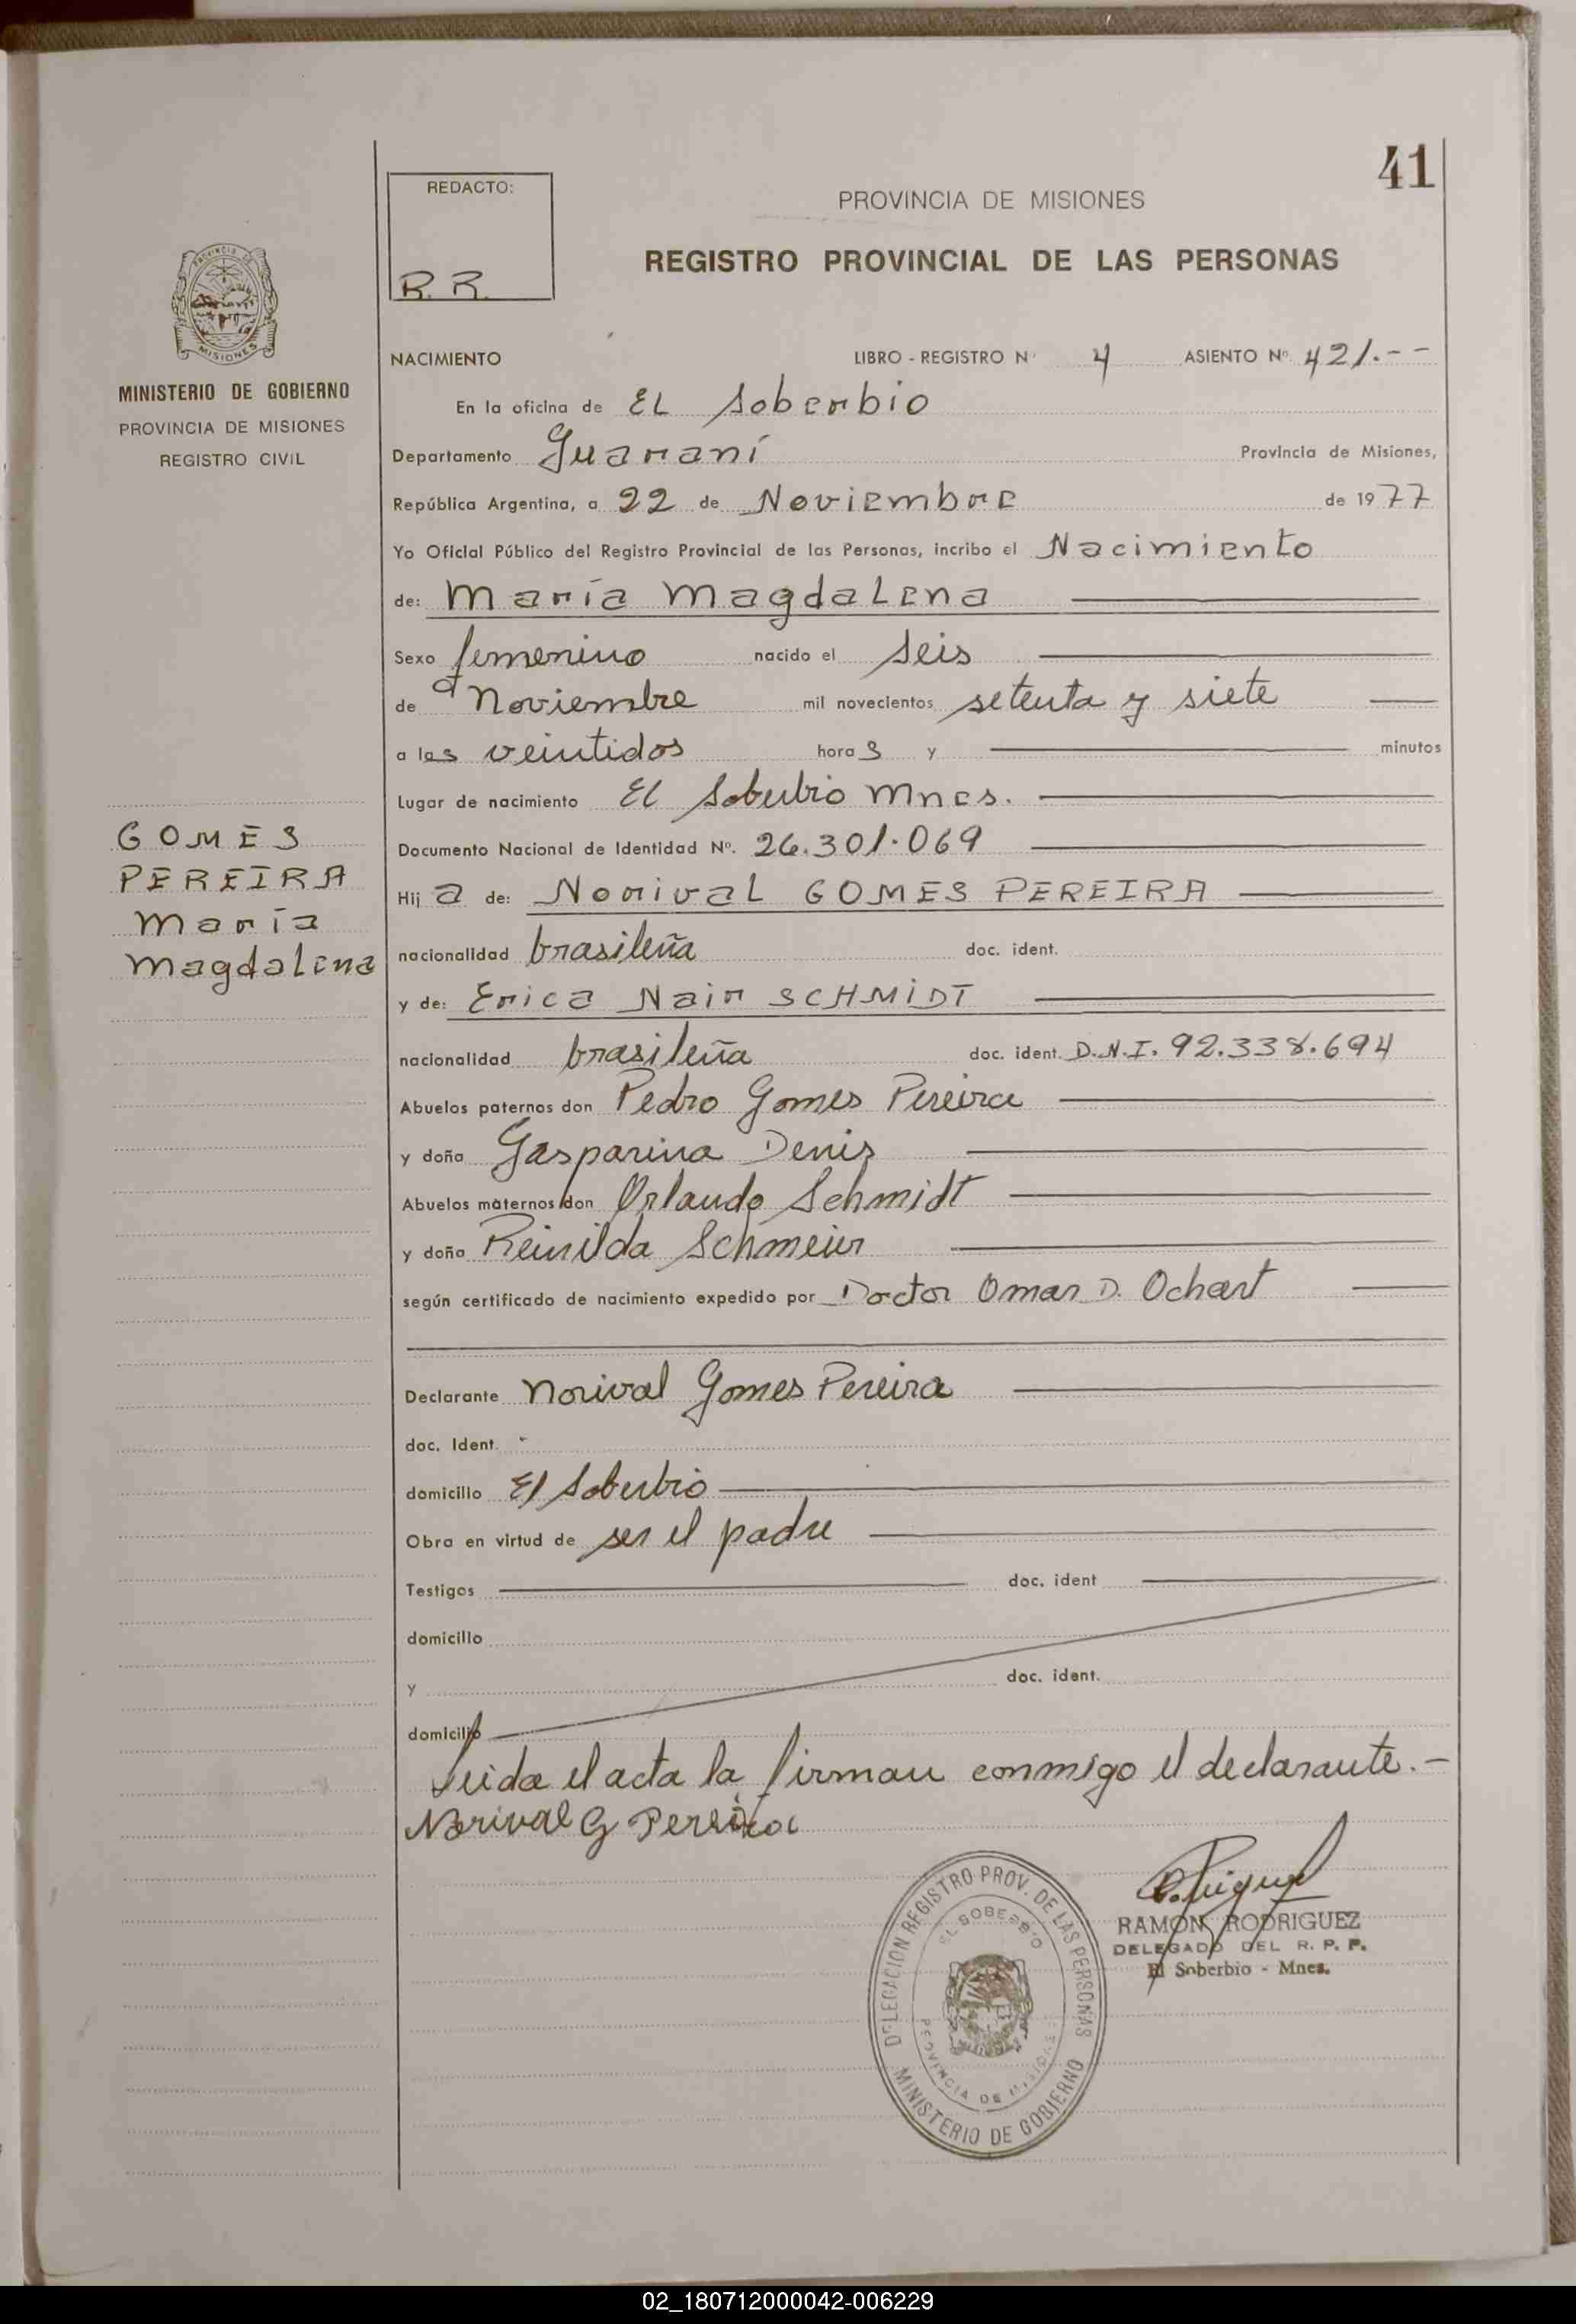 41
REDACTO:
R. R.
PROVINCIA DE MISIONES
REGISTRO PROVINCIAL DE LAS PERSONAS
PROVINCIA DE
MISIONES
MINISTERIO DE GOBIERNO
PROVINCIA DE MISIONES
REGISTRO CIVIL
NACIMIENTO LIBRO - REGISTRO Nº 4 ASIENTO Nº 421.--
En la oficina de EL Soberbio
Departamento Guaraní Provincia de Misiones,
República Argentina, a 22 de Noviembre de 1977
Yo Oficial Público del Registro Provincial de las Personas, incribo el Nacimiento
de: María Magdalena
Sexo femenino nacido el seis
de Noviembre mil novecientos setenta y siete
a las veintidos horas y minutos
Lugar de nacimiento El Soberbio Mnes.
Documento Nacional de Identidad Nº. 26.301.069
GOMES
PEREIRA
María
Magdalena
Hija de: Norival GOMES PEREIRA
nacionalidad brasileña doc. ident.
y de: Erica Nair SCHMIDT
nacionalidad brasileña doc. ident. D.N.I. 92.338.694
Abuelos paternos don Pedro Gomes Pereira
y doña Gasparina Denis
Abuelos maternos don Orlando Schmidt
y doña Reinilda Schmeier
según certificado de nacimiento expedido por Doctor Omar D. Ochart
Declarante Norival Gomes Pereira
doc. Ident.
domicilio El Soberbio
Obra en virtud de ser el padre
Testigos doc. ident
domicilio
y doc. ident.
domicilio
Leida el acta la firman conmigo el declarante.-
Norival G Pereira
DELEGACION REGISTRO PROV. DE LAS PERSONAS
EL SOBERBIO
PROVINCIA DE MISIONES
MINISTERIO DE GOBIERNO
RAMON RODRIGUEZ
DELEGADO DEL R. P. P.
El Soberbio - Mnes.
02_180712000042-006229